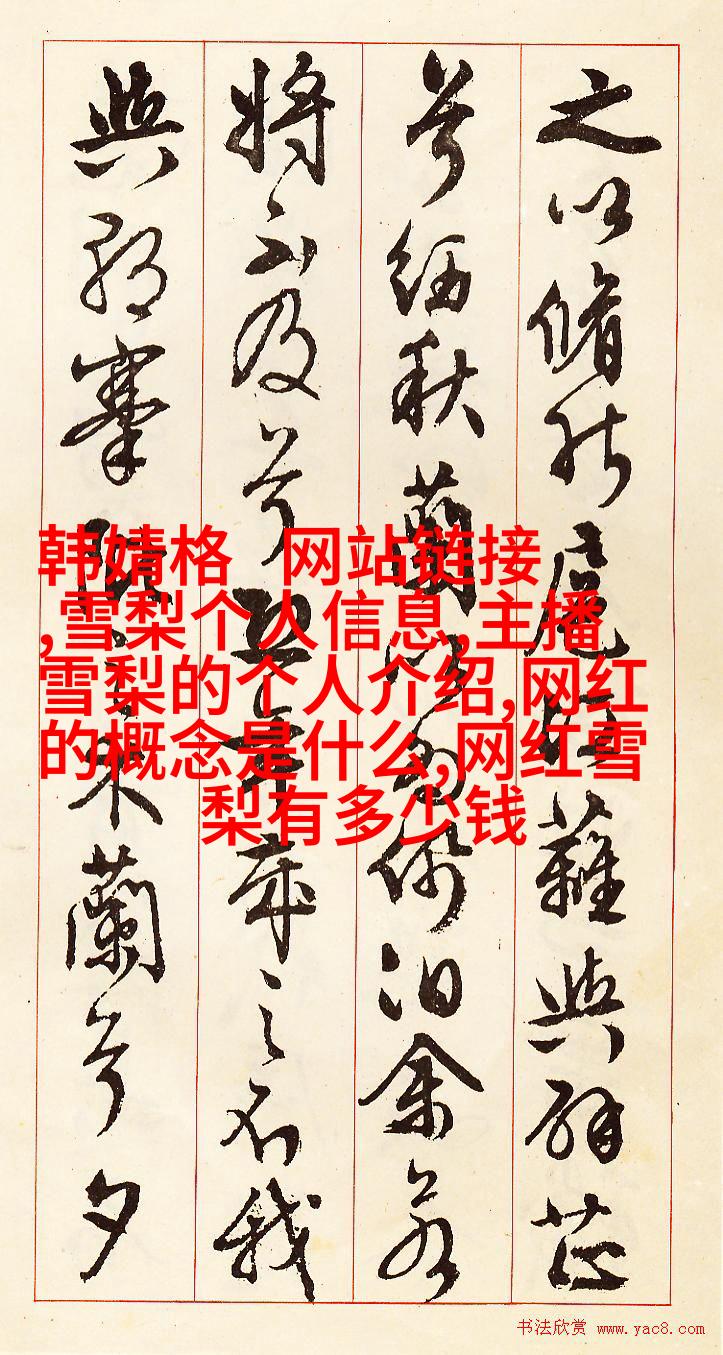 之以脩能扈江蘺與辟芷
兮紉秋蘭以為佩汩余若
將不及兮恐年歲之不我
與朝搴阰之木蘭兮夕
韩婧格 网站链接
,雪梨个人信息,主播
雪梨的个人介绍,网红
的概念是什么,网红雪
梨有多少钱
书法欣赏 www.yac8.com